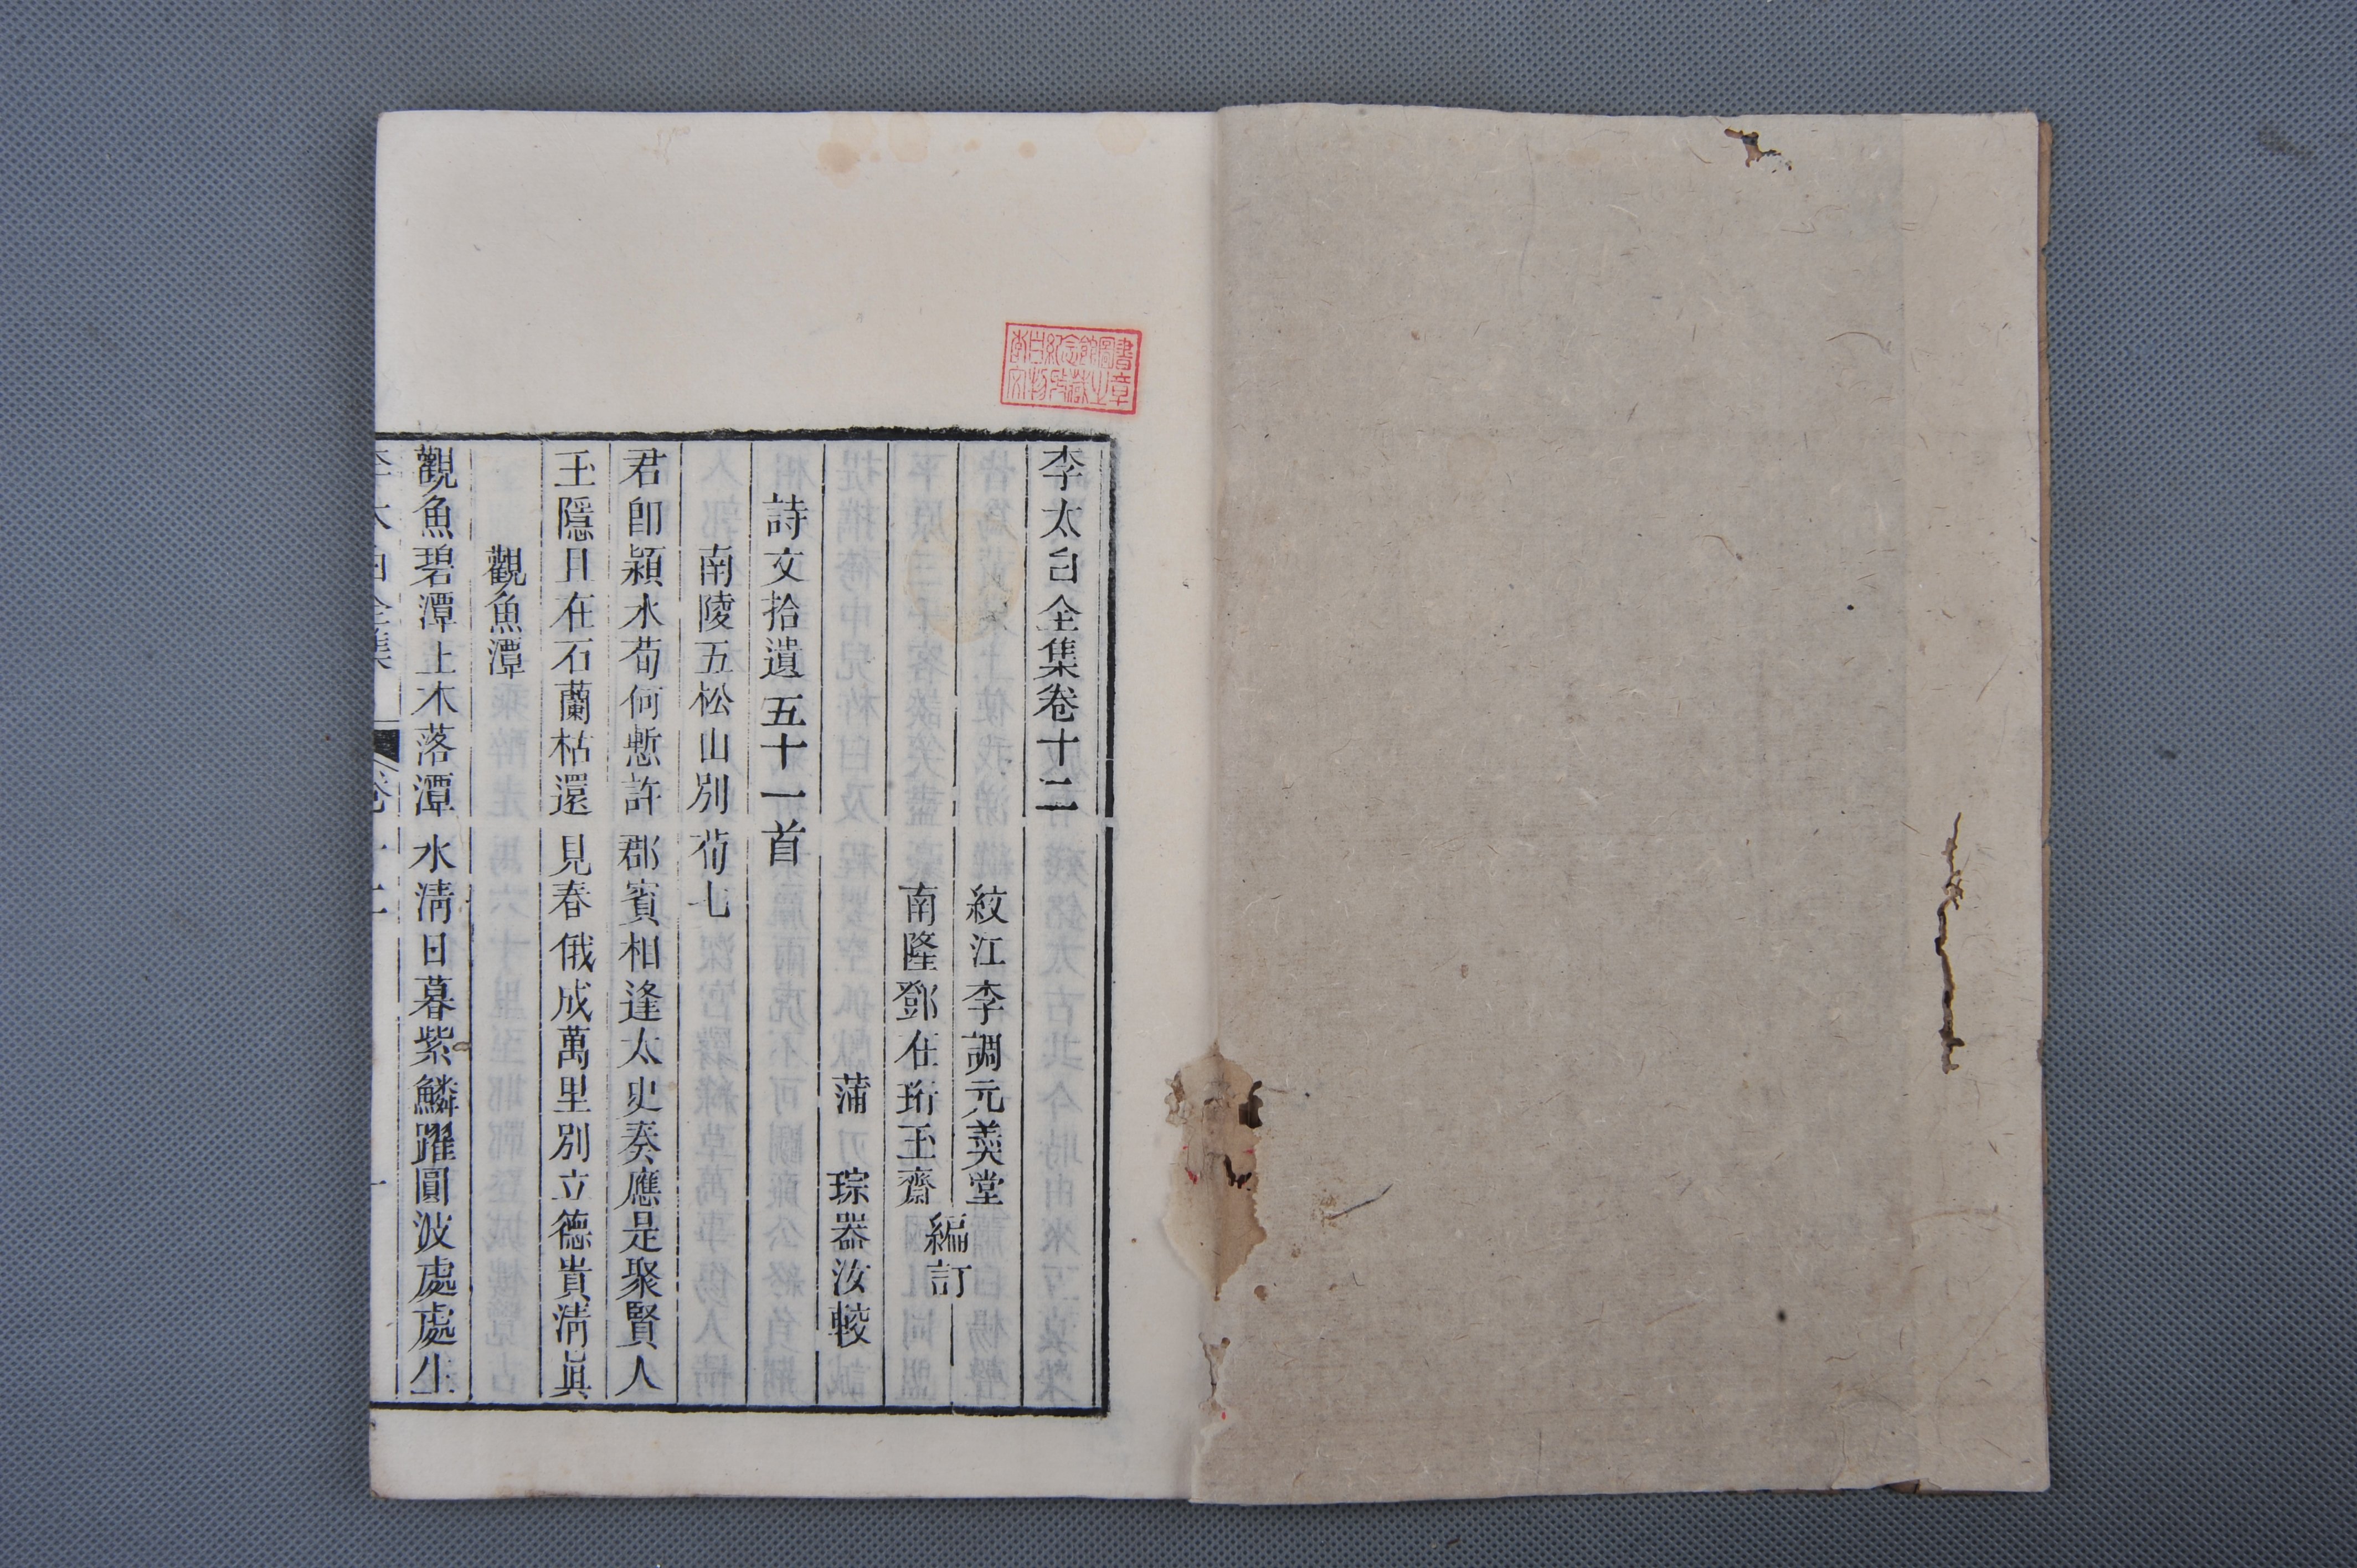 李太白全集卷十二
紋江李調元羹堂
南隆鄧在珩玉齋
編訂
蒲 琮器汝較
詩文拾遺五十一首
南陵五松山別荀七
君卽潁水荀何慙許郡賓相逢太史奏應是聚賢人
玉隱且在石蘭枯還見春俄成萬里別立德貴淸眞
觀魚潭
觀魚碧潭上木落潭水淸日暮紫鱗躍圓波處處生
李太白全集 卷十二 一
圖書館念紀白李
章之藏收物文